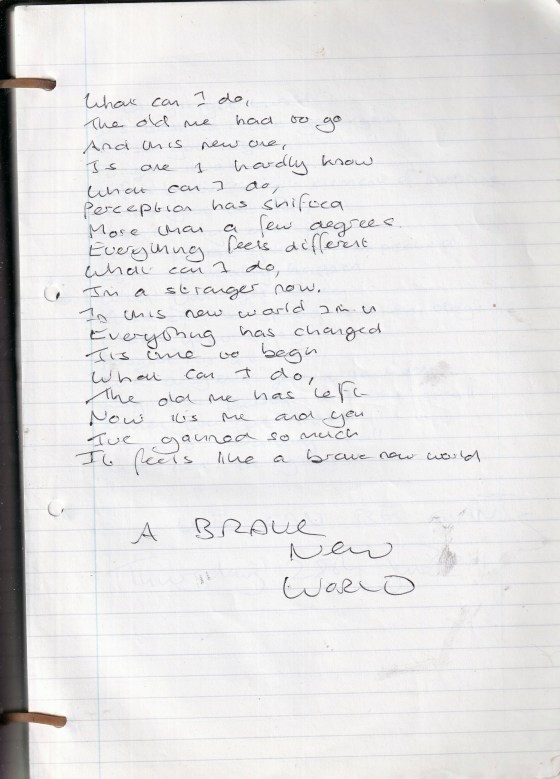 What can I do,
The old me had to go
And this new one,
Is one I hardly know
What can I do,
Perception has shifted
More than a few degrees.
Everything feels different
What can I do,
I'm a stranger now.
In this new world I'm in
Everything has changed
It's time to begin
What can I do,
The old me has left
Now it's me and you
I've gained so much
It feels like a brave new world
A BRAVE
NEW
WORLD